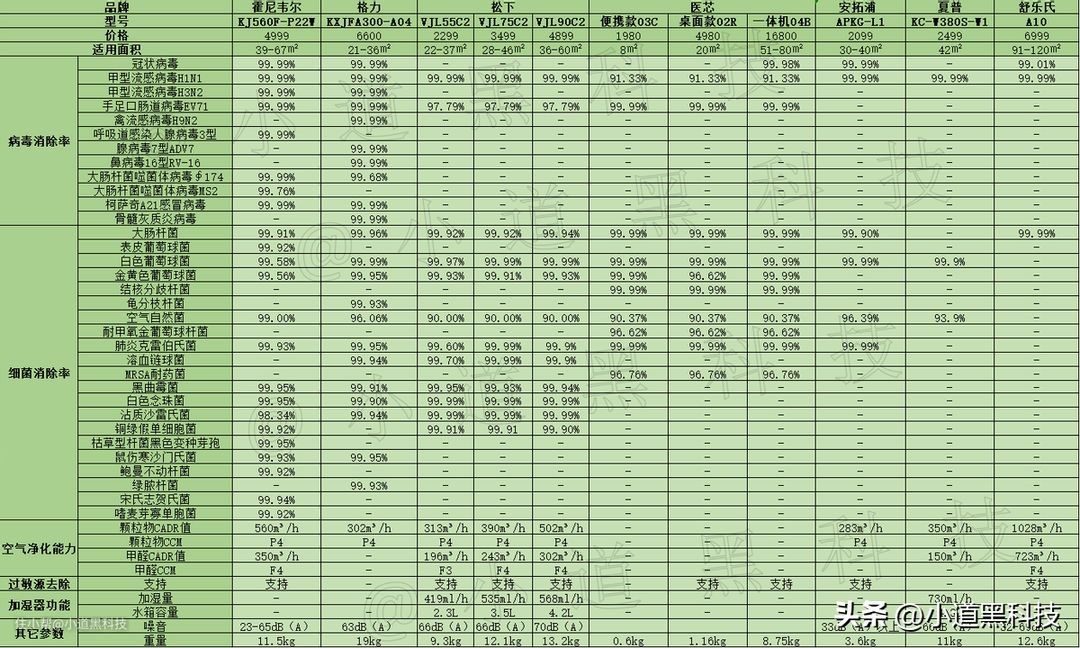 品牌 霍尼韦尔 格力 松下 医芯 安拓浦 夏普 舒乐氏
型号 KJ560F-P22W KXJFA300-A04 VJL55C2 VJL75C2 VJL90C2 便携款03C 桌面款02R 一体机04B APKG-L1 KC-W380S-W1 A10
价格 4999 6600 2299 3499 4899 1980 4980 16800 2099 2499 6999
适用面积 39-67m² 21-36m² 22-37m² 28-46m² 36-60m² 8m² 20m² 51-80m² 30-40m² 42m² 91-120m²
病毒消除率
冠状病毒 99.99% 99.99% - - - - - 99.98% 99.99% - 99.01%
甲型流感病毒H1N1 99.99% 99.99% 99.99% 99.99% 99.99% 91.33% 91.33% 91.33% 99.99% 99.99% 99.99%
甲型流感病毒H3N2 99.99% 99.99% - - - - - - - - -
手足口肠道病毒EV71 99.99% 99.99% 97.79% 97.79% 97.79% 99.99% 99.99% 99.99% - - -
禽流感病毒H9N2 - 99.99% - - - - - - - - -
呼吸道感染人腺病毒3型 99.99% - - - - - - - - - -
腺病毒7型ADV7 - 99.99% - - - - - - - - -
鼻病毒16型RV-16 - 99.99% - - - - - - - - -
大肠杆菌噬菌体病毒∮174 99.99% 99.68% - - - - - - - - -
大肠杆菌噬菌体病毒MS2 99.76% - - - - - - - - - -
柯萨奇A21感冒病毒 99.99% 99.99% - - - - - - - - -
骨髓灰质炎病毒 - 99.99% - - - - - - - - -
细菌消除率
大肠杆菌 99.91% 99.96% 99.92% 99.92% 99.94% 99.99% 99.99% 99.99% 99.90% - 99.99%
表皮葡萄球菌 99.92% - - - - - - - - - -
白色葡萄球菌 99.58% 99.99% 99.97% 99.99% 99.99% 99.99% 99.99% 99.99% 99.99% 99.9% -
金黄色葡萄球菌 99.56% 99.95% 99.93% 99.91% 99.93% 99.99% 96.62% 99.99% - - -
结核分歧杆菌 - - - - - 99.99% 99.99% 99.99% - - -
龟分枝杆菌 - 99.93% - - - - - - - - -
空气自然菌 99.00% 96.06% 90.00% 90.00% 90.00% 90.37% 90.37% 90.37% 96.39% 93.9% -
耐甲氧金葡萄球杆菌 - - - - - 96.62% 96.62% 96.62% - - -
肺炎克雷伯氏菌 99.93% 99.95% 99.60% 99.99% 99.9% 99.99% 99.99% 99.99% 99.99% - -
溶血链球菌 - 99.94% 99.70% 99.99% 99.9% - - - - - -
MRSA耐药菌 - - - - - 96.76% 96.76% 96.76% - - -
黑曲霉菌 99.95% 99.91% 99.95% 99.93% 99.94% - - - - - -
白色念珠菌 99.95% 99.90% 99.99% 99.99% 99.99% - - - - - -
沾质沙雷氏菌 98.34% 99.94% 99.99% 99.99% 99.99% - - - - - -
铜绿假单细胞菌 99.92% - 99.91% 99.91 99.90% - - - - - -
枯草型杆菌黑色变种芽孢 99.95% - - - - - - - - - -
鼠伤寒沙门氏菌 99.93% 99.95% - - - - - - - - -
鲍曼不动杆菌 99.92% - - - - - - - - - -
绿脓杆菌 - 99.93% - - - - - - - - -
宋氏志贺氏菌 99.94% - - - - - - - - - -
嗜麦芽寡单胞菌 99.92% - - - - - - - - - -
空气净化能力
颗粒物CADR值 560m³/h 302m³/h 313m³/h 390m³/h 502m³/h - - - 283m³/h 350m³/h 1028m³/h
颗粒物CCM P4 P4 P4 P4 P4 - - - P4 P4 P4
甲醛CADR值 350m³/h - 196m³/h 243m³/h 302m³/h - - - - 150m³/h 723m³/h
甲醛CCM F4 - F3 F4 F4 - - - - - F4
过敏源去除 支持 - 支持 支持 支持 - 支持 支持 支持 - 支持
加湿器功能
加湿量 - - 419ml/h 535ml/h 568ml/h - - - - 730ml/h -
水箱容量 - - 2.3L 3.5L 4.2L - - -
其它参数
噪音 23-65dB（A） 63dB（A） 66dB（A） 66dB（A） 70dB（A） - - -
重量 11.5kg 19kg 9.3kg 12.1kg 13.2kg 0.6kg 1.16kg 8.75kg 3.6kg 11kg 12.6kg
@小道黑科技
住小帮@小道黑科技
头条 @小道黑科技